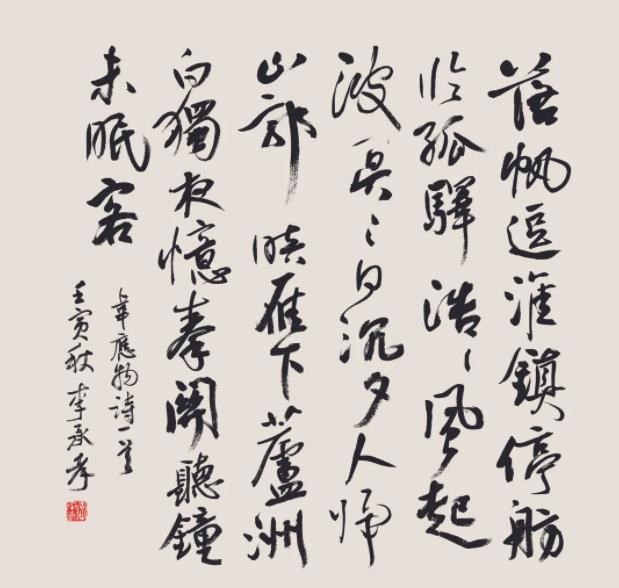 落帆逗淮鎮停舫
临孤驛浩〻風起
波冥〻日沉夕人歸
山郭暗雁下蘆洲
白獨夜憶秦關聽鐘
未眠客
韋應物詩一首
壬寅秋李承孝